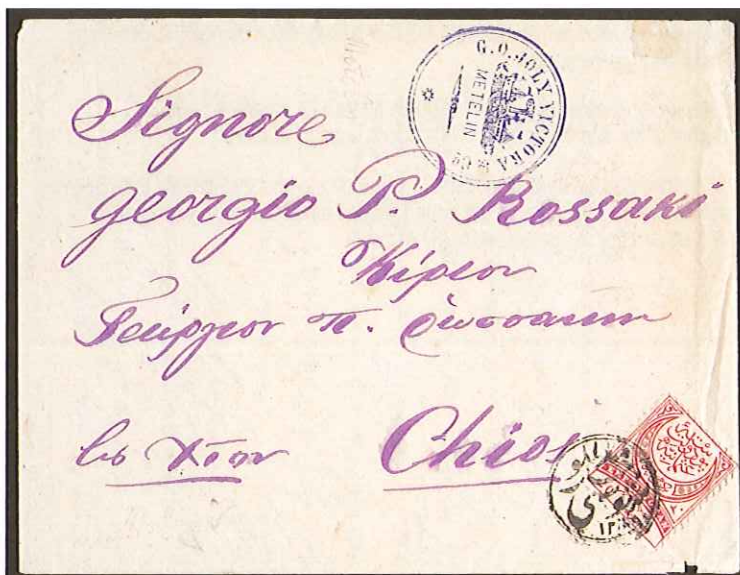 G.O. JOLY VICTORA & Co
METELIN
Signore
Georgio P. Rossaki
Κύριον
Γεώργιον Π. Ρωσσάκην
εἰς Χίον
Chios